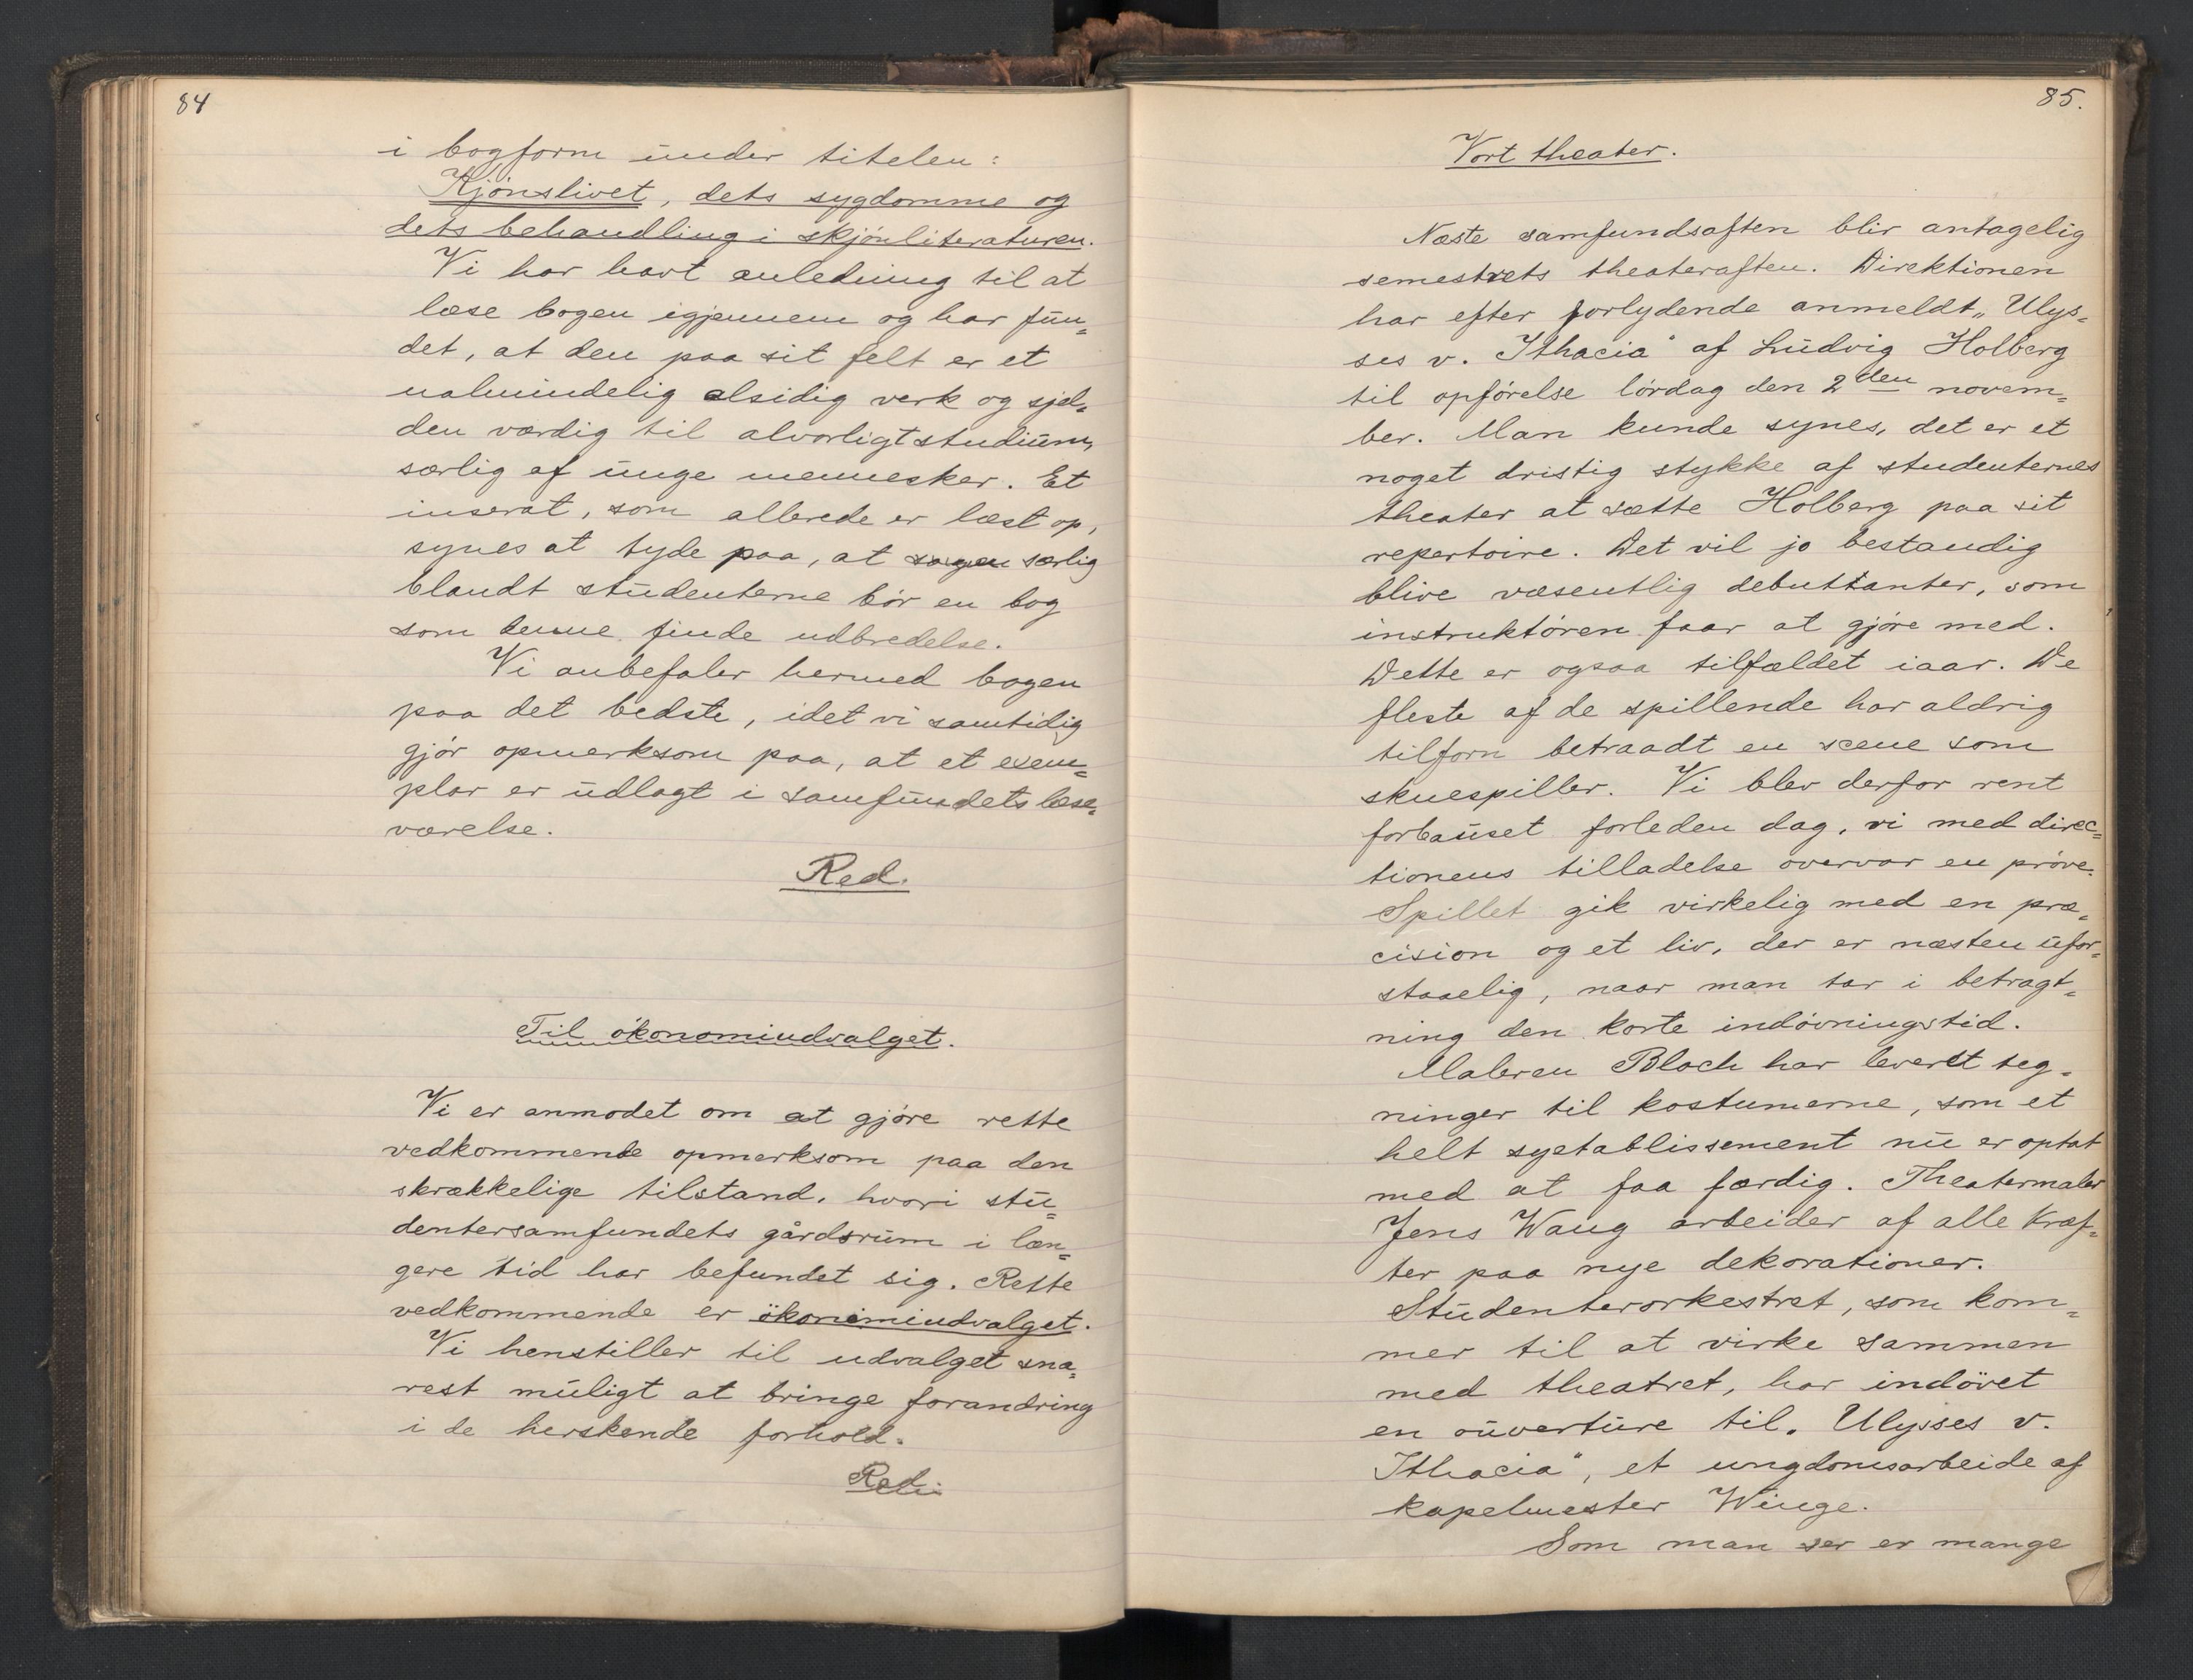 84
i bogform under titelen:
Kjønslivet, dets sygdomme og
dets behandling i skjønliteraturen.
Vi har havt anledning til at
læse bogen igjennem og har fun-
det, at den paa sit felt er et
ualmindelig alsidig verk og sjel-
den værdig til alvorligt studium,
særlig af unge mennesker. Et
inserat, som allerede er læst op,
synes at tyde paa, at særlig
blandt studenterne bør en bog
som denne finde udbredelse.
Vi anbefaler hermed bogen
paa det bedste, idet vi samtidig
gjør opmerksom paa, at et exem-
plar er udlagt i samfundets læse-
værelse.
Red.
Til økonomiudvalget.
Vi er anmodet om at gjøre rette
vedkommende opmerksom paa den
skrækkelige tilstand, hvori stu-
dentersamfundets gårdsrum i læn-
gere tid har befundet sig. Rette
vedkommende er økonimiudvalget.
Vi henstiller til udvalget sna-
rest muligt at bringe forandring
i de herskende forhold.
Red.
85.
Vort theater.
Næste samfundsaften blir antagelig
semestrets theateraften. Direktionen
har efter forlydende anmeldt „Ulys-
ses v. Ithacia" af Ludvig Holberg
til opførelse lørdag den 2den novem-
ber. Man kunde synes, det er et
noget dristig stykke af studenternes
theater at sætte Holberg paa sit
repertoire. Det vil jo bestandig
blive væsentlig debuttanter, som
instruktøren faar at gjøre med.
Dette er ogsaa tilfældet iaar. De
fleste af de spillende har aldrig
tilforn betraadt en scene som
skuespiller. Vi blev derfor rent
forbauset forleden dag, vi med direc-
tionens tilladelse overvar en prøve.
Spillet gik virkelig med en præ-
cision og et liv, der er næsten ufor-
staaelig, naar man tar i betragt-
ning den korte indøvningstid.
Maleren Bloch har leveret teg-
ninger til kostumerne, som et
helt syetablissement nu er optat
med at faa færdig. Theatermaler
Jens Wang arbeider af alle kræf-
ter paa nye dekorationer.
Studenterorkestret, som kom-
mer til at virke sammen
med theatret, har indøvet
en ouverture til „Ulysses v.
Ithacia", et ungdomsarbeide af
kapelmester Winge.
Som man ser er mange